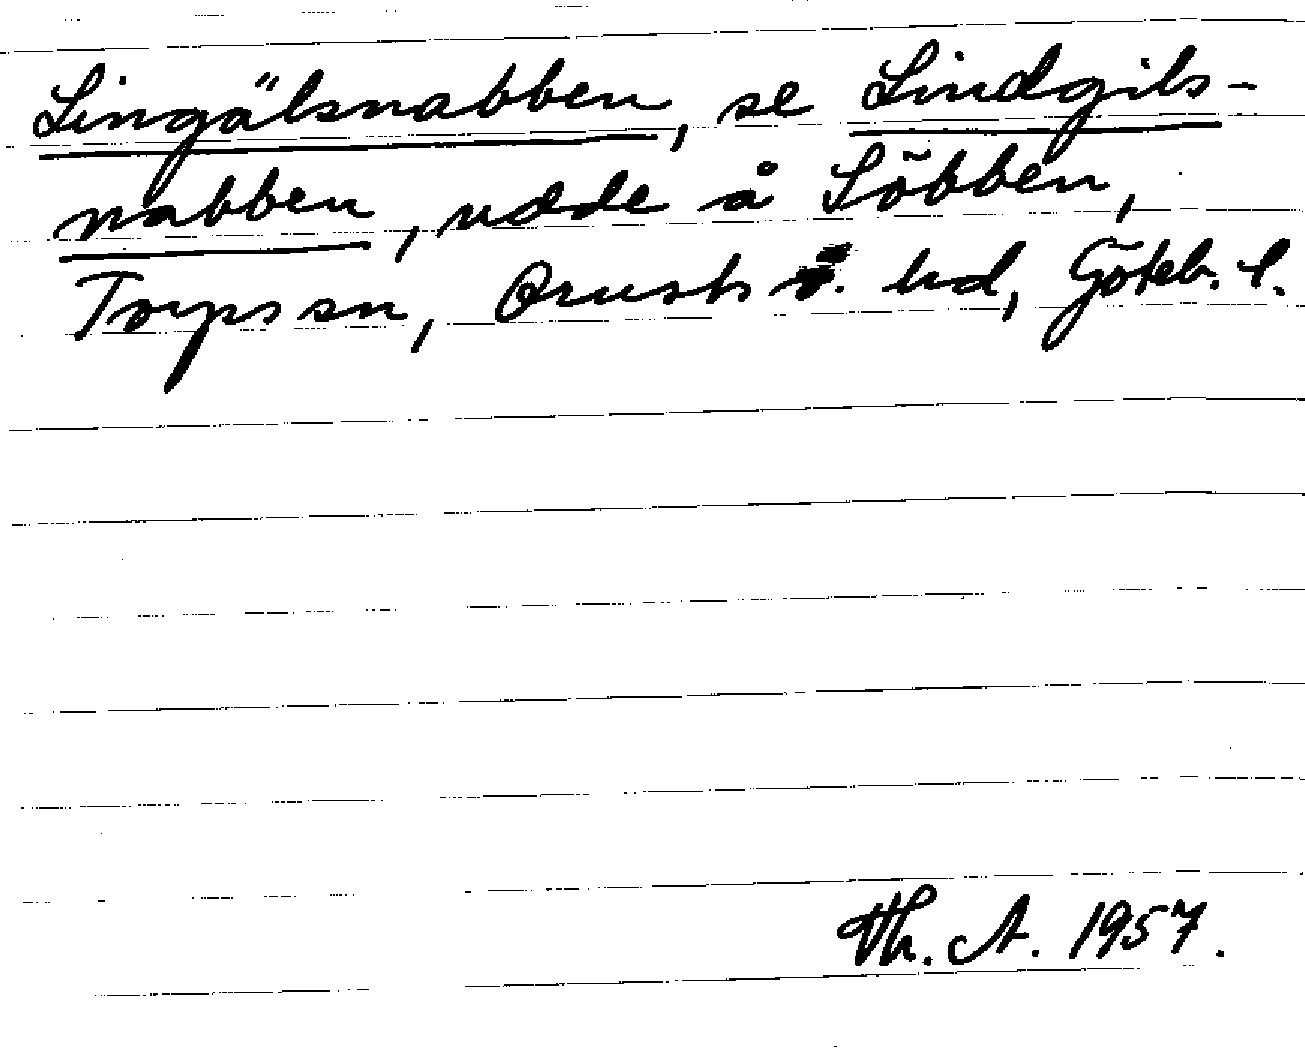 Lingälsnabben, se Lindgils-
nabben, udde å Löbben,
Torps sn, Orusts v. hd, Göteb. l.
Th. A. 1957.